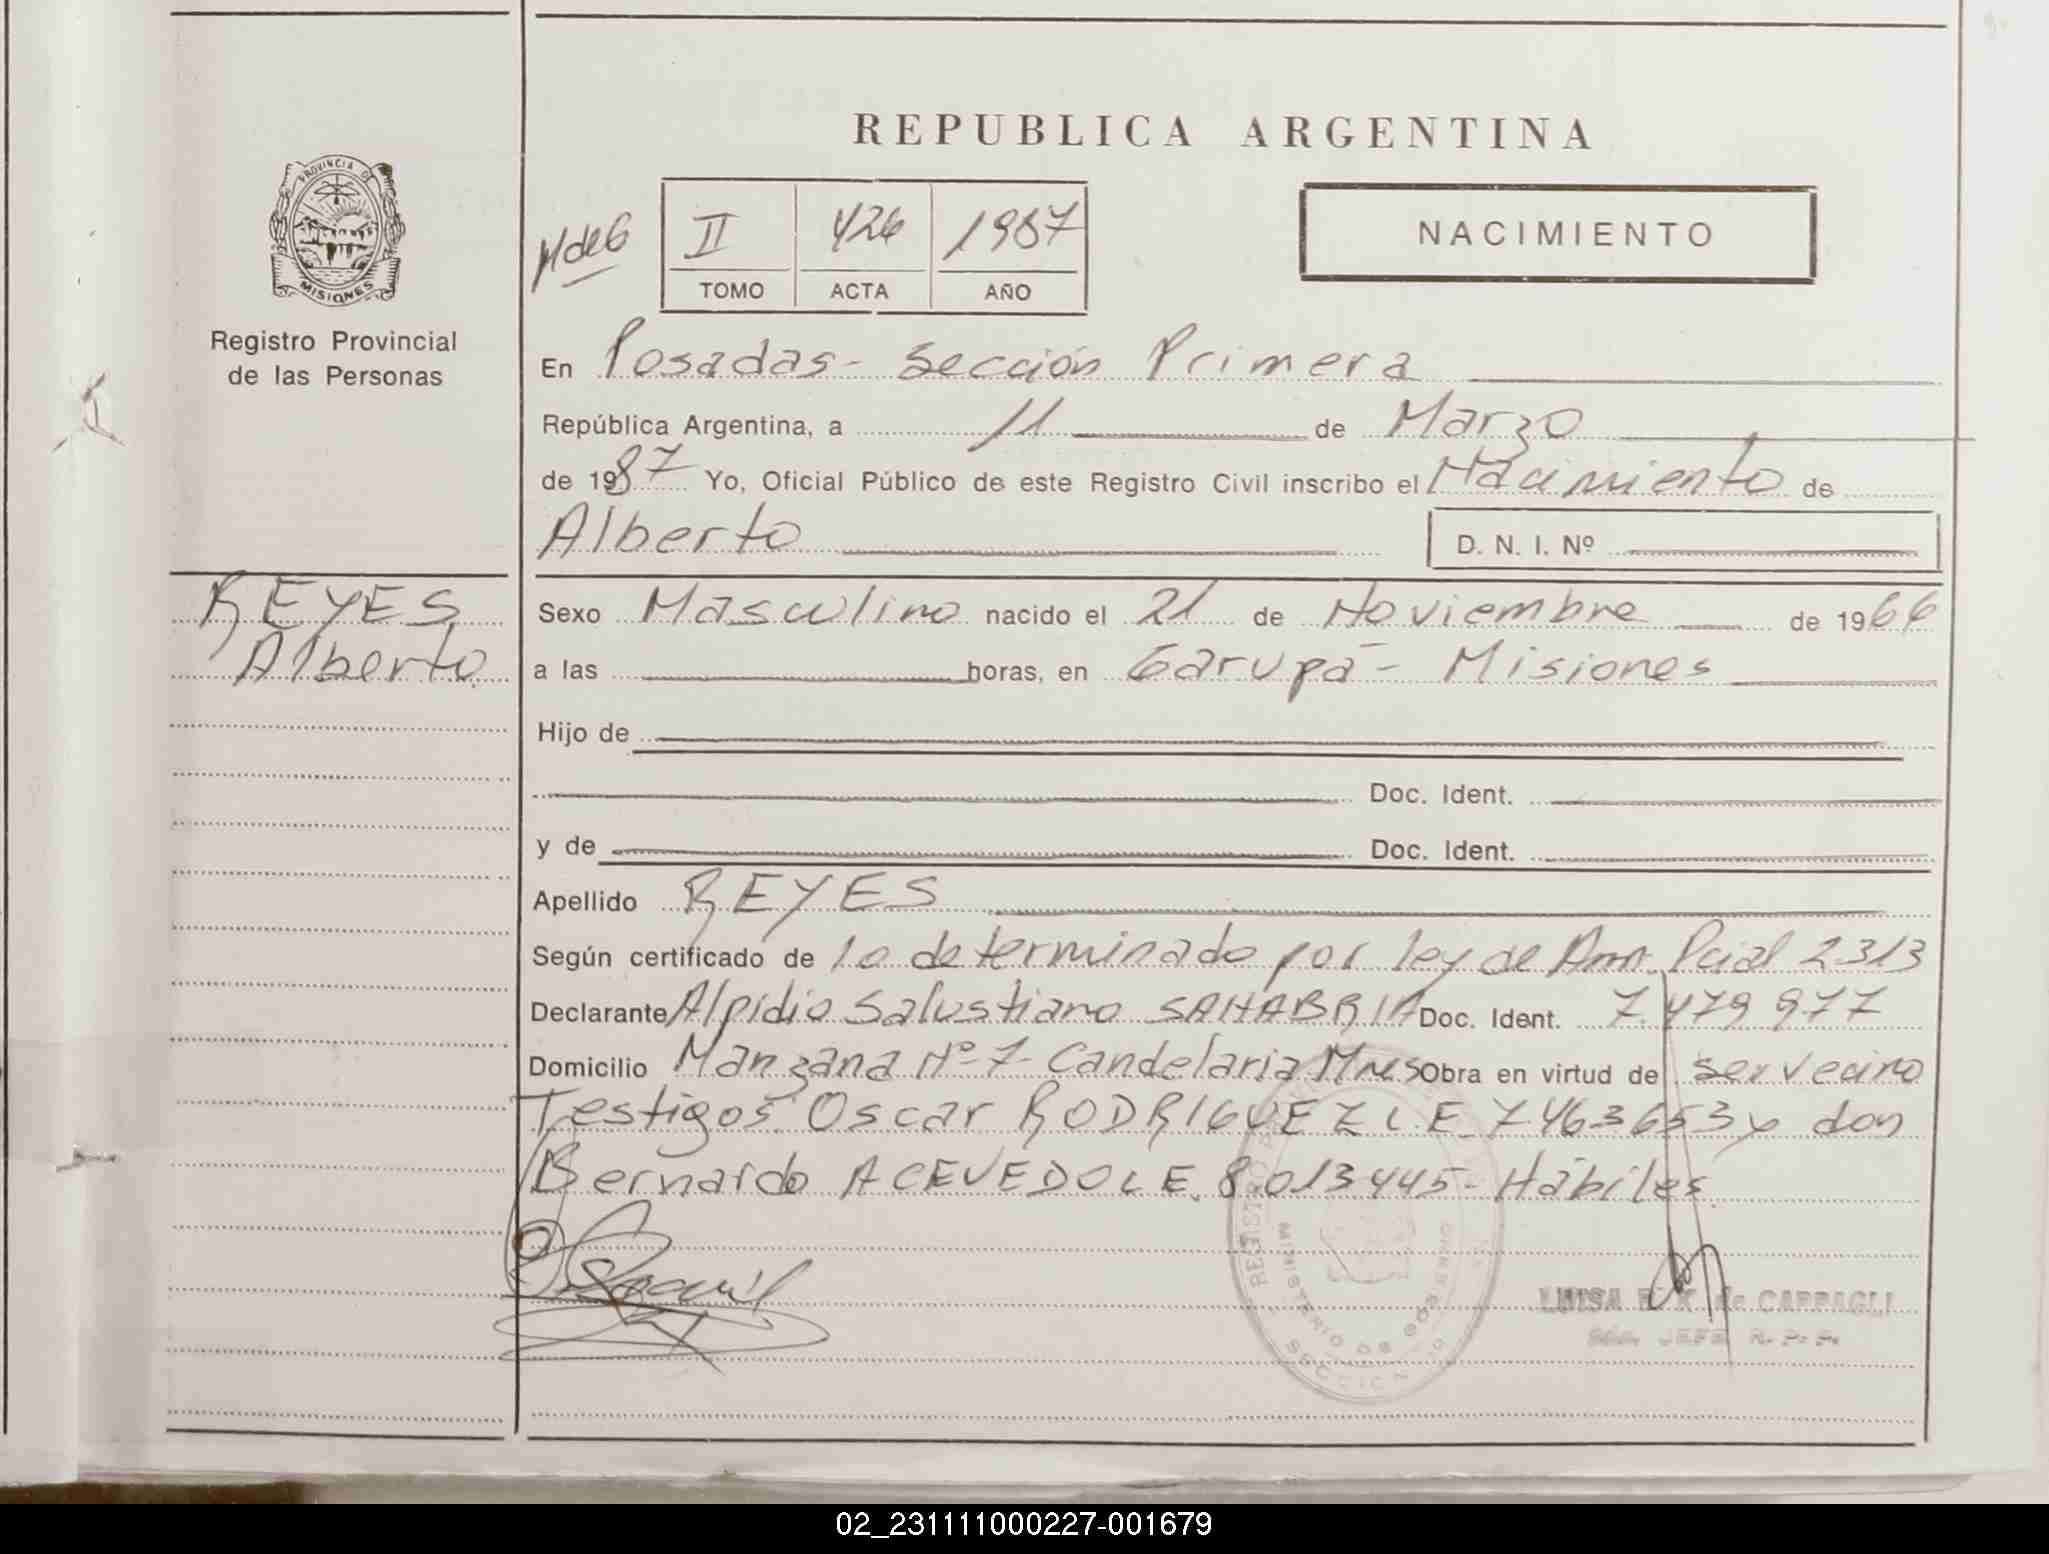 REPUBLICA ARGENTINA
PROVINCIA DE
MISIONES
Registro Provincial
de las Personas
NACIMIENTO
MdeG II 426 1987
TOMO ACTA AÑO
En Posadas - Sección Primera
República Argentina, a 11 de Marzo
de 1987 Yo, Oficial Público de este Registro Civil inscribo el Nacimiento de
Alberto D. N. I. Nº
REYES
Alberto
Sexo Masculino nacido el 21 de Noviembre de 1966
a las horas, en Garupá - Misiones
Hijo de
Doc. Ident.
y de Doc. Ident.
Apellido REYES
Según certificado de lo determinado por ley de Amn. Pcial 2313
Declarante Alpidio Salustiano SANABRIA Doc. Ident. 7.479 977
Domicilio Manzana Nº 7 - Candelaria Mnes Obra en virtud de ser vecino
Testigos Oscar RODRIGUEZ L.E. 7463653 y don
Bernardo ACEVEDO L E. 8.013445 - Hábiles
REGISTRO
MINISTERIO DE GOBIERNO
SECCION
LUISA de CAPPAGLI
JEFE R. P. P.
02_231111000227-001679